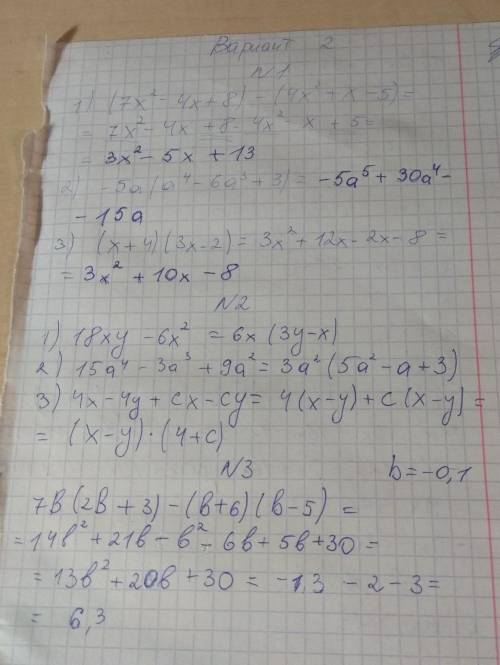 Вариант 2
N1
1) (7x² - 4x + 8) - (4x² + x - 5) =
= 7x² - 4x + 8 - 4x² - x + 5 =
= 3x² - 5x + 13
2) -5a(a⁴ - 6a³ + 3) = -5a⁵ + 30a⁴ -
- 15a
3) (x+4)(3x-2) = 3x² + 12x - 2x - 8 =
= 3x² + 10x - 8
N2
1) 18xy - 6x² = 6x(3y-x)
2) 15a⁴ - 3a³ + 9a² = 3a²(5a² - a + 3)
3) 4x - 4y + cx - cy = 4(x-y) + c(x-y) =
= (x-y)·(4+c)
N3 b = -0,1
7b(2b+3) - (b+6)(b-5) =
= 14b² + 21b - b² - 6b + 5b + 30 =
= 13b² + 20b + 30 = -1,3 - 2 - 3 =
= 6,3